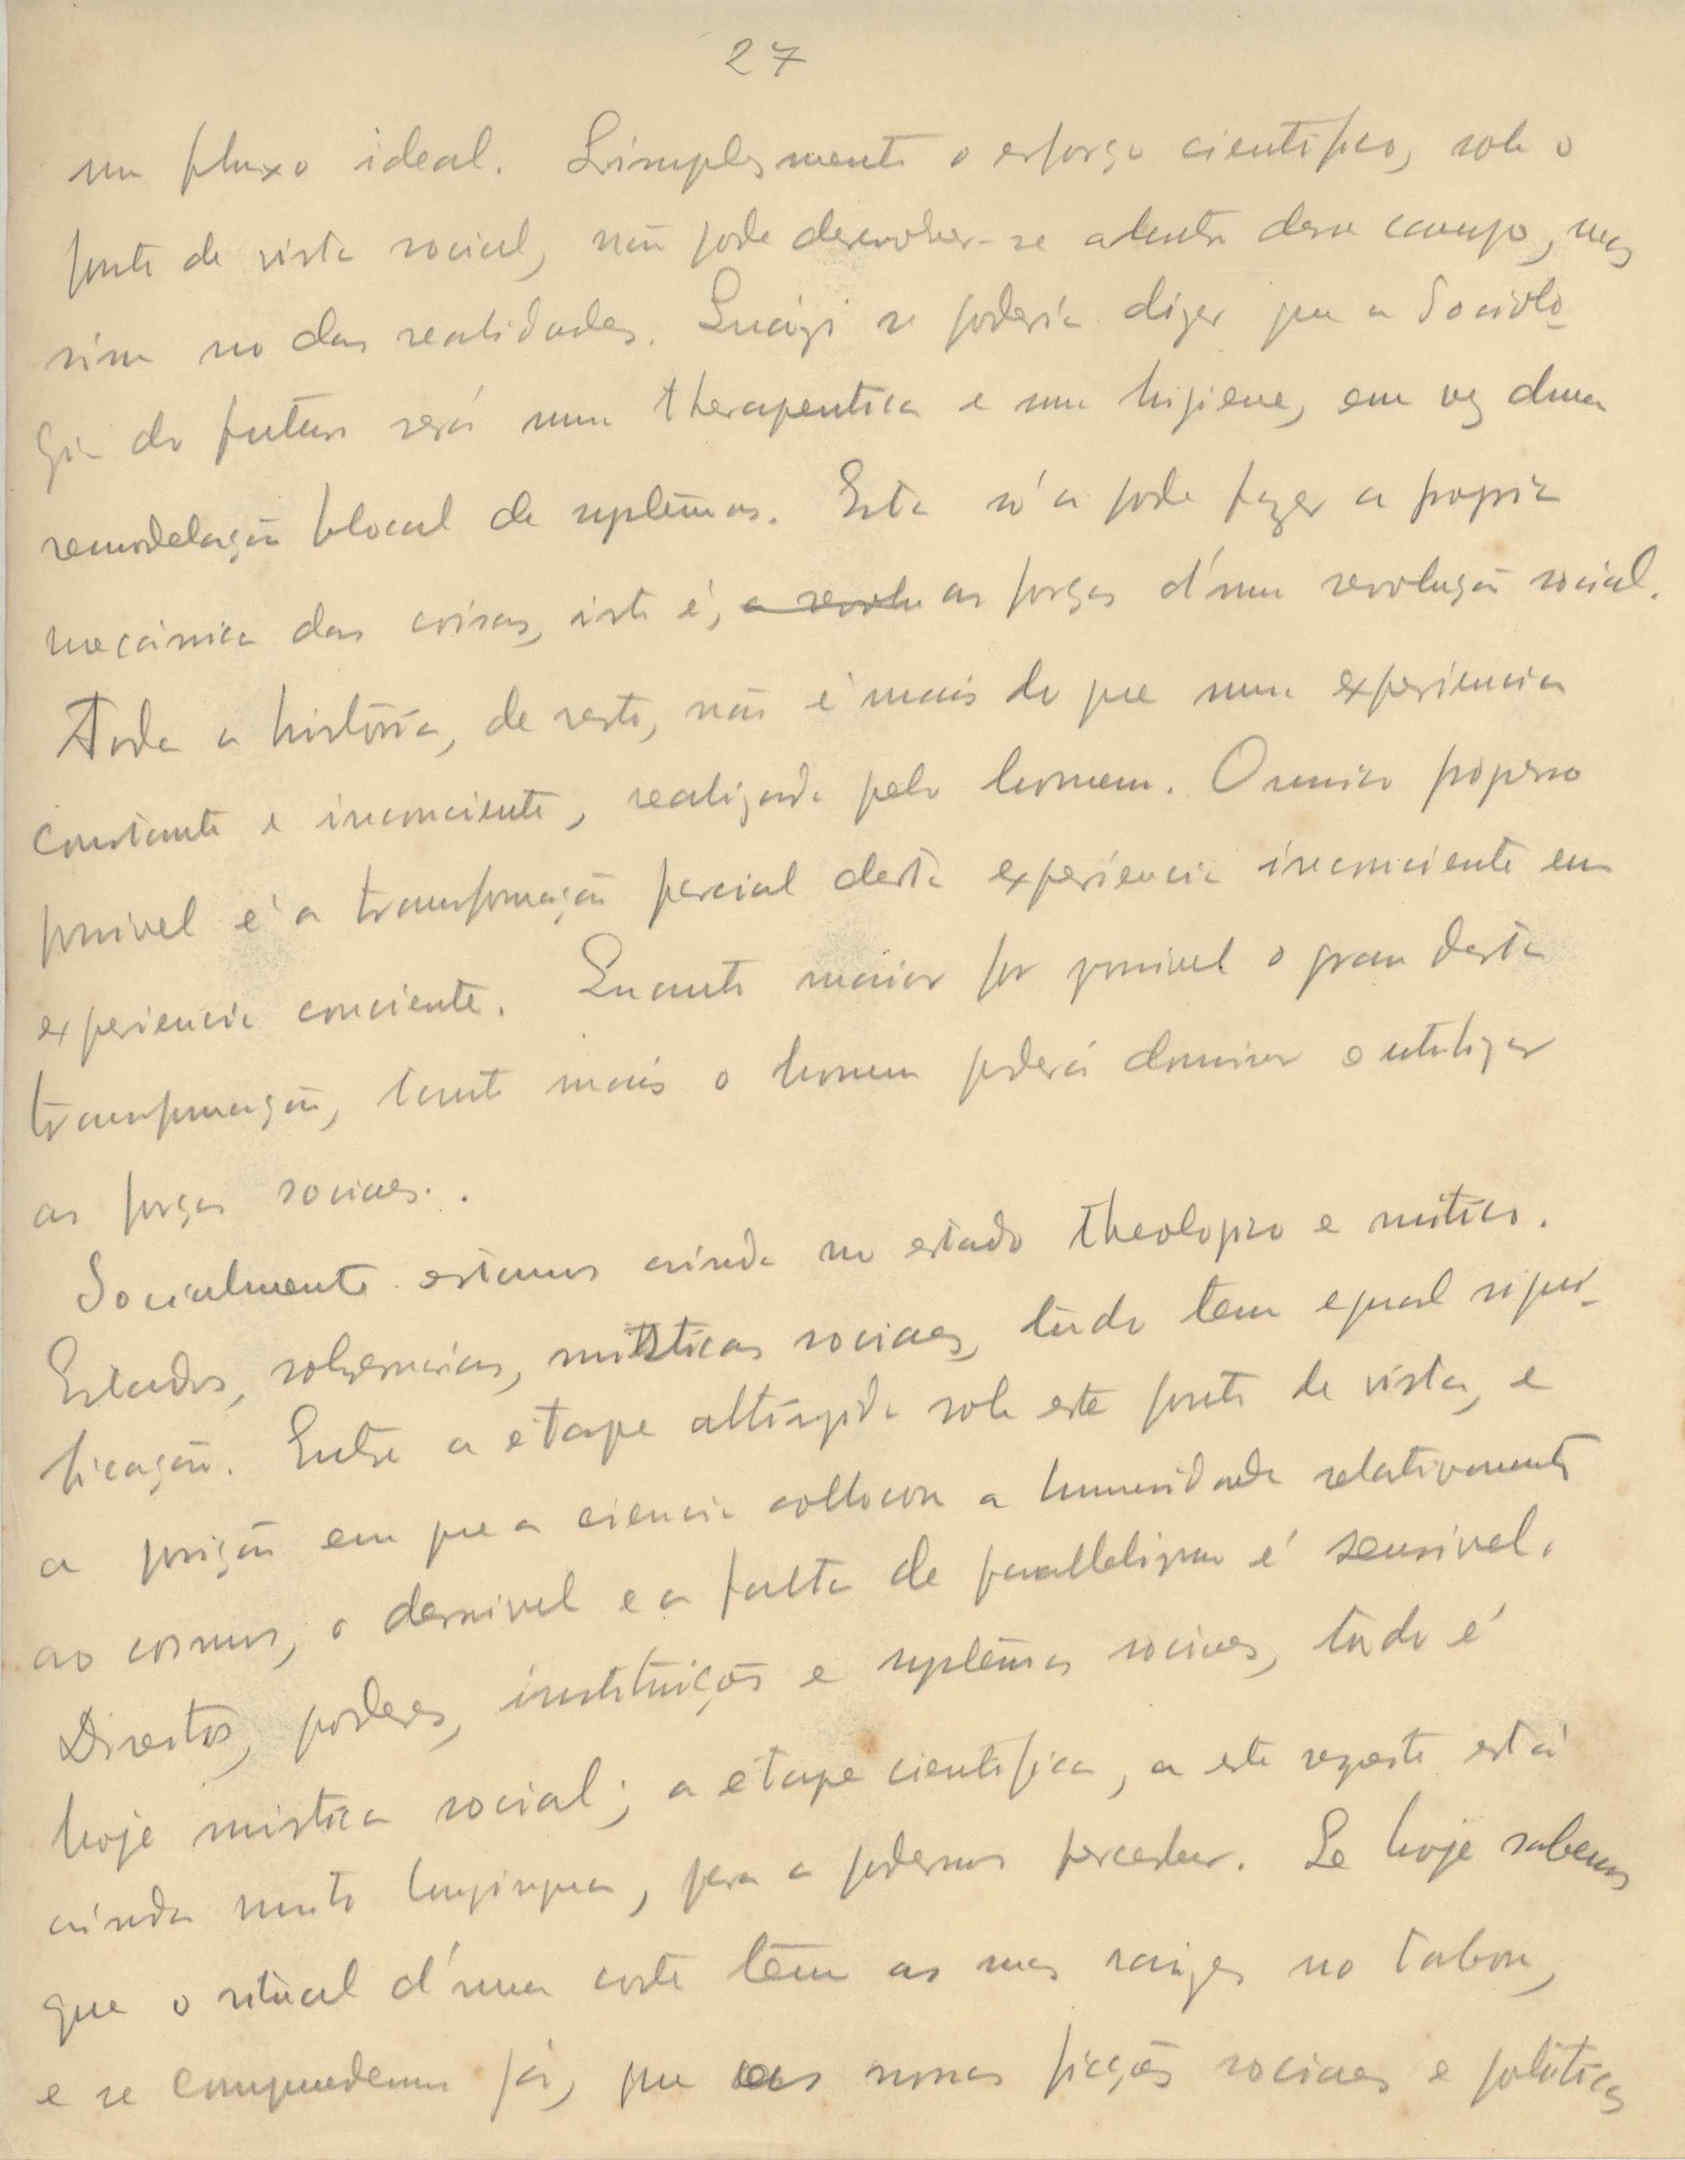 27
um fluxo ideal. Simplesmente o esforço cientifico, sob o
ponto de vista social, não pode desenvolver-se adentro desse campo, mas
sim no das realidades. Quási se poderia dizer que a Sociolo-
gia do futuro será uma therapeutica e uma higiene, em vez duma
remodelação blocal de systêmas. Esta só a pode fazer a propria
mecânica das coisas, isto é, a revolu as forças d'uma revolução social.
Toda a história, de resto, não é mais do que uma experiencia
constante e inconciente, realizada pelo homem. O unico progresso
possivel é a transformação parcial desta experiencia inconciente em
experiencia conciente. Quanto maior for possivel o grau desta
transformação, tanto mais o homem poderá dominar e utilizar
as forças sociaes.
Socialmente estamos ainda no estado theologico e mitico.
Estados, soberanias, místicas sociaes, tudo tem egual signi-
ficação. Entre a étape attingida sob este ponto de vista, e
a posição em que a ciencia collocou a humanidade relativamente
ao cosmos, o desnivel e a falta de parallelismo é sensivel.
Direitos, poderes, instituições e systêmas sociaes, tudo é
hoje mistica social; a étape cientifica, a este respeito está
ainda muito longinqua, para a podermos perceber. Se hoje sabemos
que o ritual d'uma corte têm as suas raizes no tabou,
e se compreendemos já, que as nossas ficções sociaes e politicas